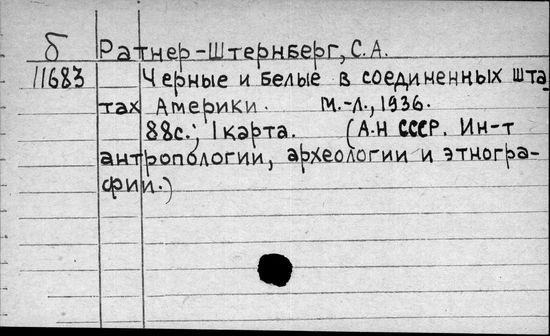 б Ратнер-Штернберг, С.А.
11683 Черные и белые в соединенных шта-
тах Америки. М.-Л., 1936.
88с.; 1 карта. (А.Н СССР. Ин-т
антропологии, археологии и этногра-
фии.)